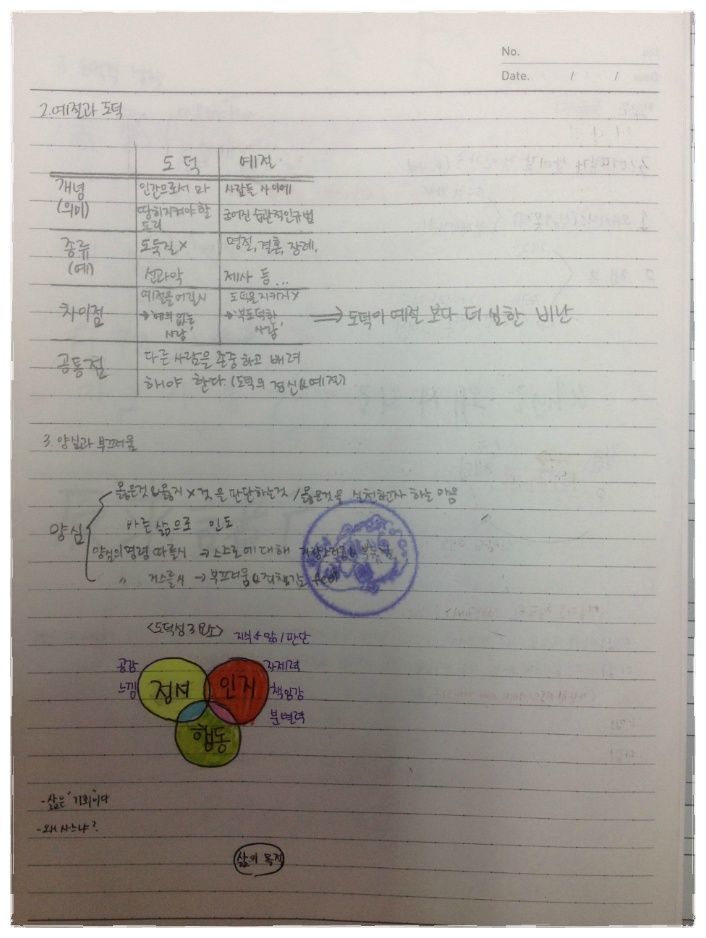 No.
Date. / /
2. 예절과 도덕
도덕 예절
개념 인간으로서 마 사람들 사이에
(의미) 땅히지켜야할 굳어진 습관적인규범
도리
종류 도둑질× 명절, 결혼, 장례,
(예) 선과악 제사 등...
차이점 예절을 어길시 도덕을지키지×
→'예의 없는 →'부도덕한 ⟹ 도덕이 예절 보다 더 심한 비난
사람' 사람'
공통점 다른 사람을 존중하고 배려
해야 한다. (도덕의 정신 예절)
3. 양심과 부끄러움
옳은것&옳지×것을 판단하는것 / 옳은것을 실천하고자 하는 마음
양심 바른 삶으로 인도
양심의명령 따를시 → 스스로에대해
〃 거스를시 → 부끄러움&죄책감
<도덕성 3요소> 지식 앎 / 판단
공감 정서 인지 자제력
느낌 책임감
행동 분별력
- 삶은 '기회'이다
- 왜 사느냐?
삶의 목적